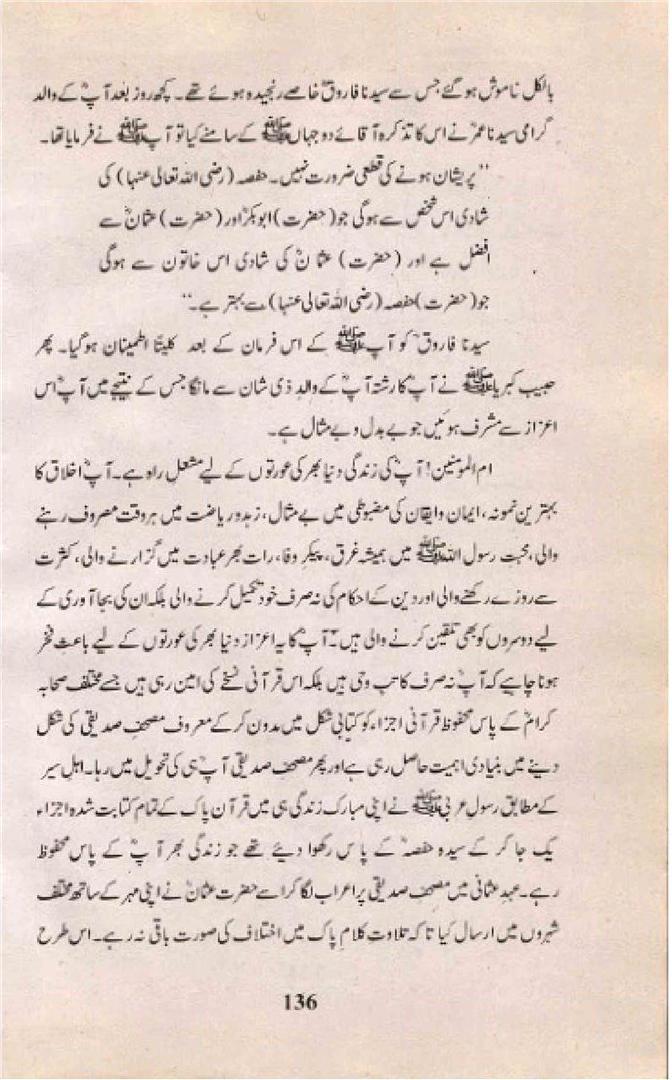 بالکل ناموش ہو گئے جس سے سیدنا فاروقؓ خاصے رنجیدہ ہوئے تھے۔ کچھ روز بعد آپؓ کے والد
گرامی سیدنا عمرؓ نے اس کا تذکرہ آقائے دو جہاں ﷺ کے سامنے کیا تو آپ ﷺ نے فرمایا تھا۔
’’پریشان ہونے کی قطعی ضرورت نہیں۔ حفصہ (رضی اللہ تعالی عنہا) کی
شادی اس شخص سے ہوگی جو (حضرت) ابوبکرؓ اور (حضرت) عثمانؓ سے
افضل ہے اور (حضرت) عثمانؓ کی شادی اس خاتون سے ہوگی
جو (حضرت) حفصہ (رضی اللہ تعالی عنہا) سے بہتر ہے۔‘‘
سیدنا فاروقؓ کو آپ ﷺ کے اس فرمان کے بعد کلیتًا اطمینان ہوگیا۔ پھر
حبیب کبریا ﷺ نے آپؓ کا رشتہ آپؓ کے والد ذی شان سے مانگا جس کے نتیجے میں آپؓ اس
اعزاز سے مشرف ہوئیں جو بے بدل و بے مثال ہے۔
ام المومنین! آپؓ کی زندگی دنیا بھر کی عورتوں کے لیے مشعل راہ ہے۔ آپؓ اخلاق کا
بہترین نمونہ، ایمان و ایقان کی مضبوطی میں بے مثال، زہد و ریاضت میں ہر وقت مصروف رہنے
والی، محبت رسول اللہ ﷺ میں ہمیشہ غرق، پیکر وفا، رات بھر عبادت میں گزارنے والی، کثرت
سے روزے رکھنے والی اور دین کے احکام کی نہ صرف خود تکمیل کرنے والی بلکہ ان کی بجا آوری کے
لیے دوسروں کو بھی تلقین کرنے والی ہیں۔ آپؓ کا یہ اعزاز دنیا بھر کی عورتوں کے لیے باعث فخر
ہونا چاہیے کہ آپؓ نہ صرف کاتب وحی ہیں بلکہ اس قرآنی نسخے کی امین رہی ہیں جسے مختلف صحابہ
کرامؓ کے پاس محفوظ قرآنی اجزاء کو کتابی شکل میں مدون کر کے معروف مصحف صدیقی کی شکل
دینے میں بنیادی اہمیت حاصل رہی ہے اور پھر مصحف صدیقی آپؓ ہی کی تحویل میں رہا۔ اہل سیر
کے مطابق رسول عربی ﷺ نے اپنی مبارک زندگی ہی میں قرآن پاک کے تمام کتابت شدہ اجزاء
یک جا کر کے سیدہ حفصہؓ کے پاس رکھوا دیئے تھے جو زندگی بھر آپؓ کے پاس محفوظ
رہے۔ عہد عثمانی میں مصحف صدیقی پر اعراب لگا کر اسے حضرت عثمانؓ نے اپنی مہر کے ساتھ مختلف
شہروں میں ارسال کیا تا کہ تلاوت کلام پاک میں اختلاف کی صورت باقی نہ رہے۔ اس طرح
136